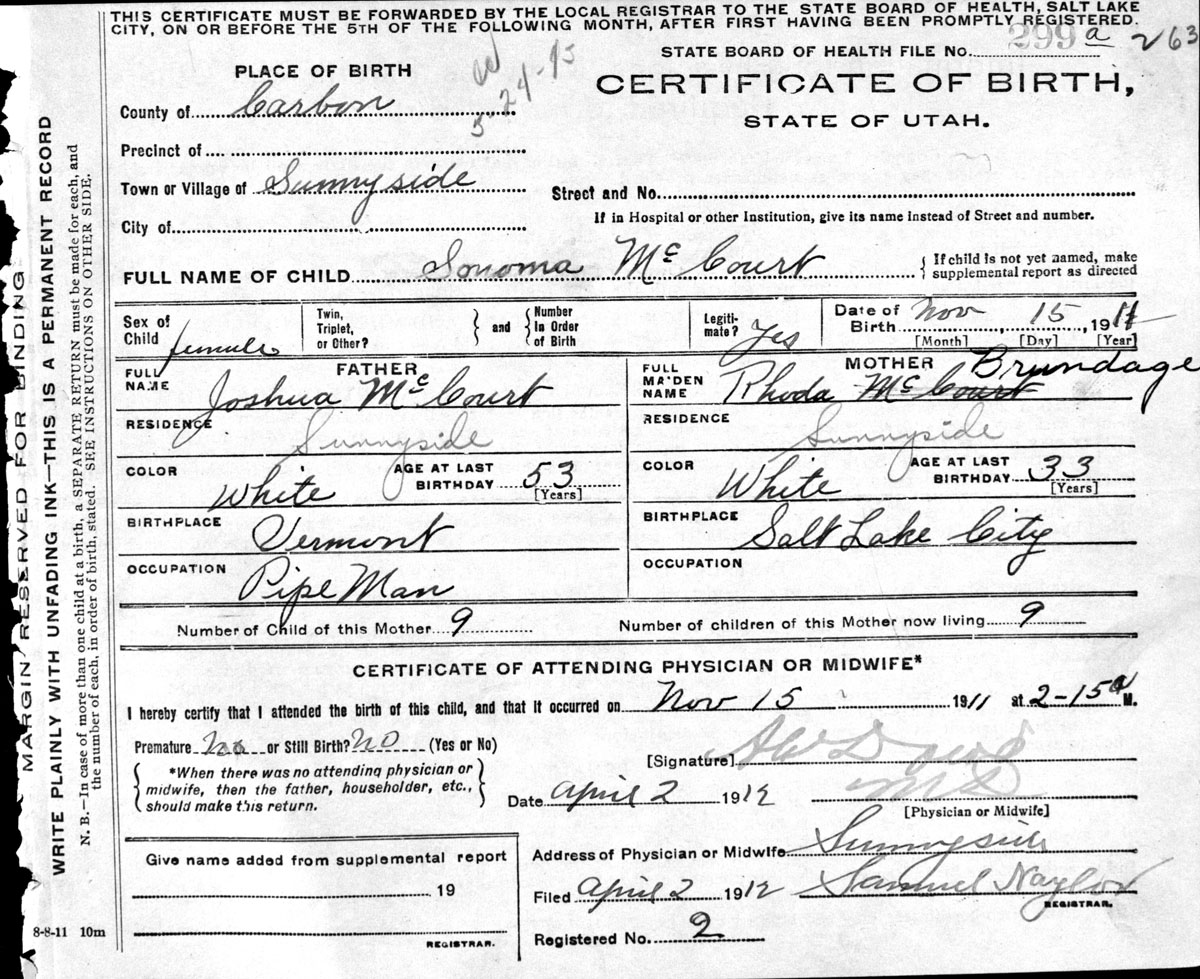 THIS CERTIFICATE MUST BE FORWARDED BY THE LOCAL REGISTRAR TO THE STATE BOARD OF HEALTH, SALT LAKE
CITY, ON OR BEFORE THE 5TH OF THE FOLLOWING MONTH, AFTER FIRST HAVING BEEN PROMPTLY REGISTERED.
STATE BOARD OF HEALTH FILE No. 299 a 263
PLACE OF BIRTH
CERTIFICATE OF BIRTH,
STATE OF UTAH.
County of Carbon
Precinct of
Town or Village of Sunnyside
Street and No.
If in Hospital or other Institution, give its name instead of Street and number.
City of
FULL NAME OF CHILD Sonoma McCourt { If child is not yet named, make
supplemental report as directed
Sex of Child female
Twin, Triplet, or Other? } and { Number In Order of Birth
Legitimate? Yes
Date of Birth Nov, 15, 1911
[Month] [Day] [Year]
FATHER
FULL NAME Joshua McCourt
RESIDENCE Sunnyside
COLOR White AGE AT LAST BIRTHDAY 53 [Years]
BIRTHPLACE Vermont
OCCUPATION Pipe Man
MOTHER
FULL MAIDEN NAME Rhoda McCourt Brundage
RESIDENCE Sunnyside
COLOR White AGE AT LAST BIRTHDAY 33 [Years]
BIRTHPLACE Salt Lake City
OCCUPATION
Number of Child of this Mother 9 Number of children of this Mother now living 9
CERTIFICATE OF ATTENDING PHYSICIAN OR MIDWIFE*
I hereby certify that I attended the birth of this child, and that it occurred on Nov 15 1911 at 2-15 a M.
Premature No or Still Birth? NO (Yes or No)
{ *When there was no attending physician or
midwife, then the father, householder, etc.,
should make this return. }
[Signature]
MD
Date April 2 1912
[Physician or Midwife]
Give name added from supplemental report
19
REGISTRAR.
Address of Physician or Midwife Sunnyside
Filed April 2 1912 Samuel Naylor
REGISTRAR.
Registered No. 2
8-8-11 10m
MARGIN RESERVED FOR BINDING
WRITE PLAINLY WITH UNFADING INK—THIS IS A PERMANENT RECORD
N. B.—In case of more than one child at a birth, a SEPARATE RETURN must be made for each, and
the number of each, in order of birth, stated. SEE INSTRUCTIONS ON OTHER SIDE.